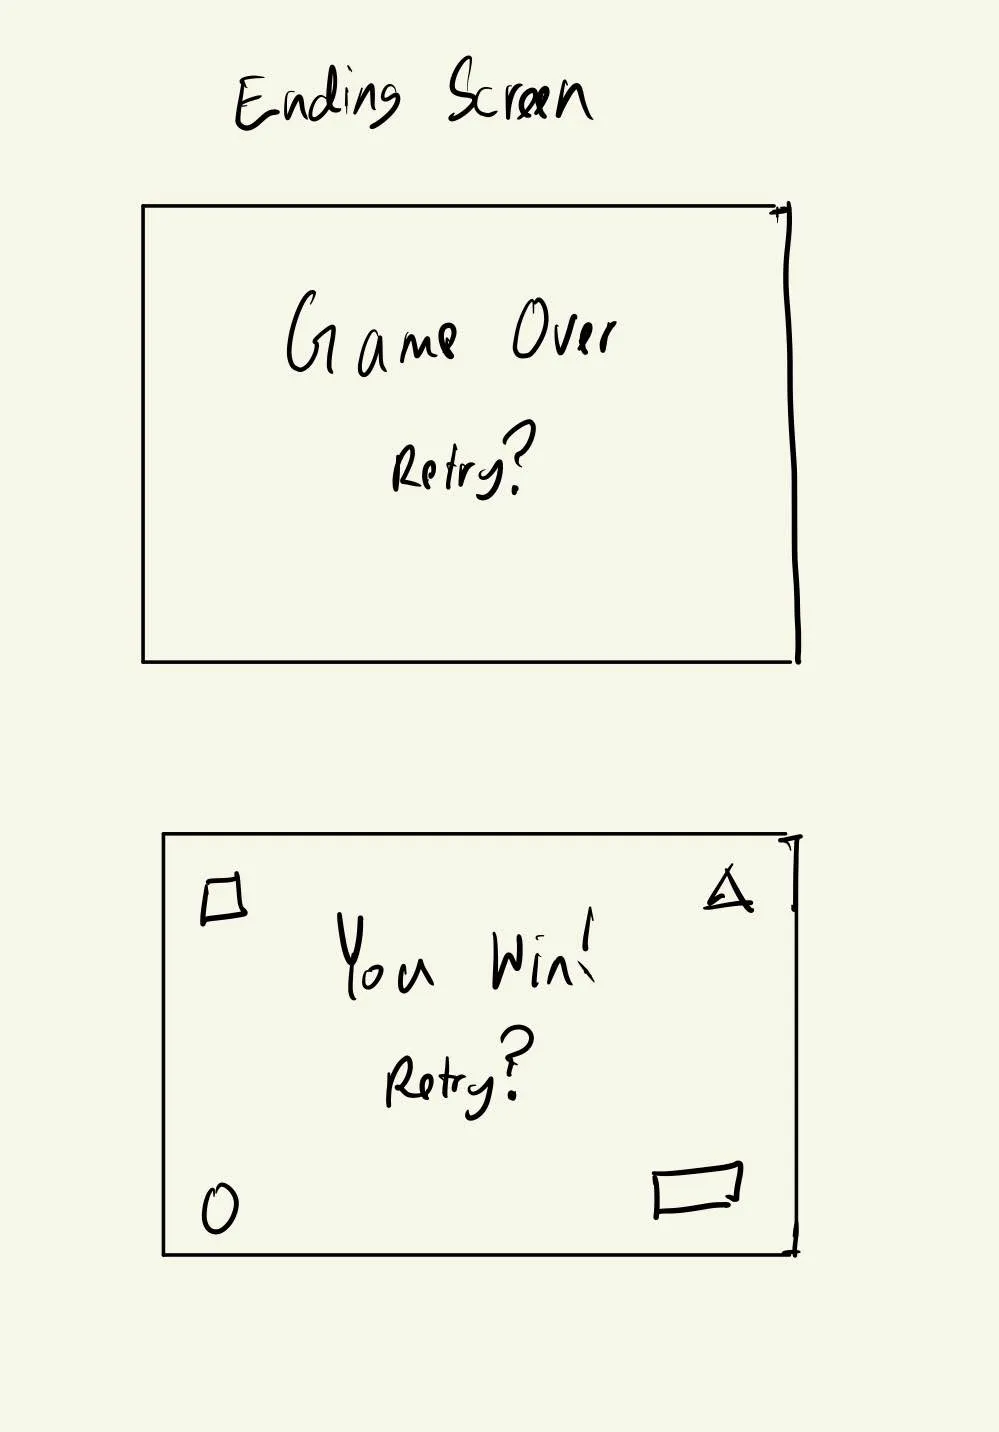 Ending Screen
Game Over
Retry?
You Win!
Retry?